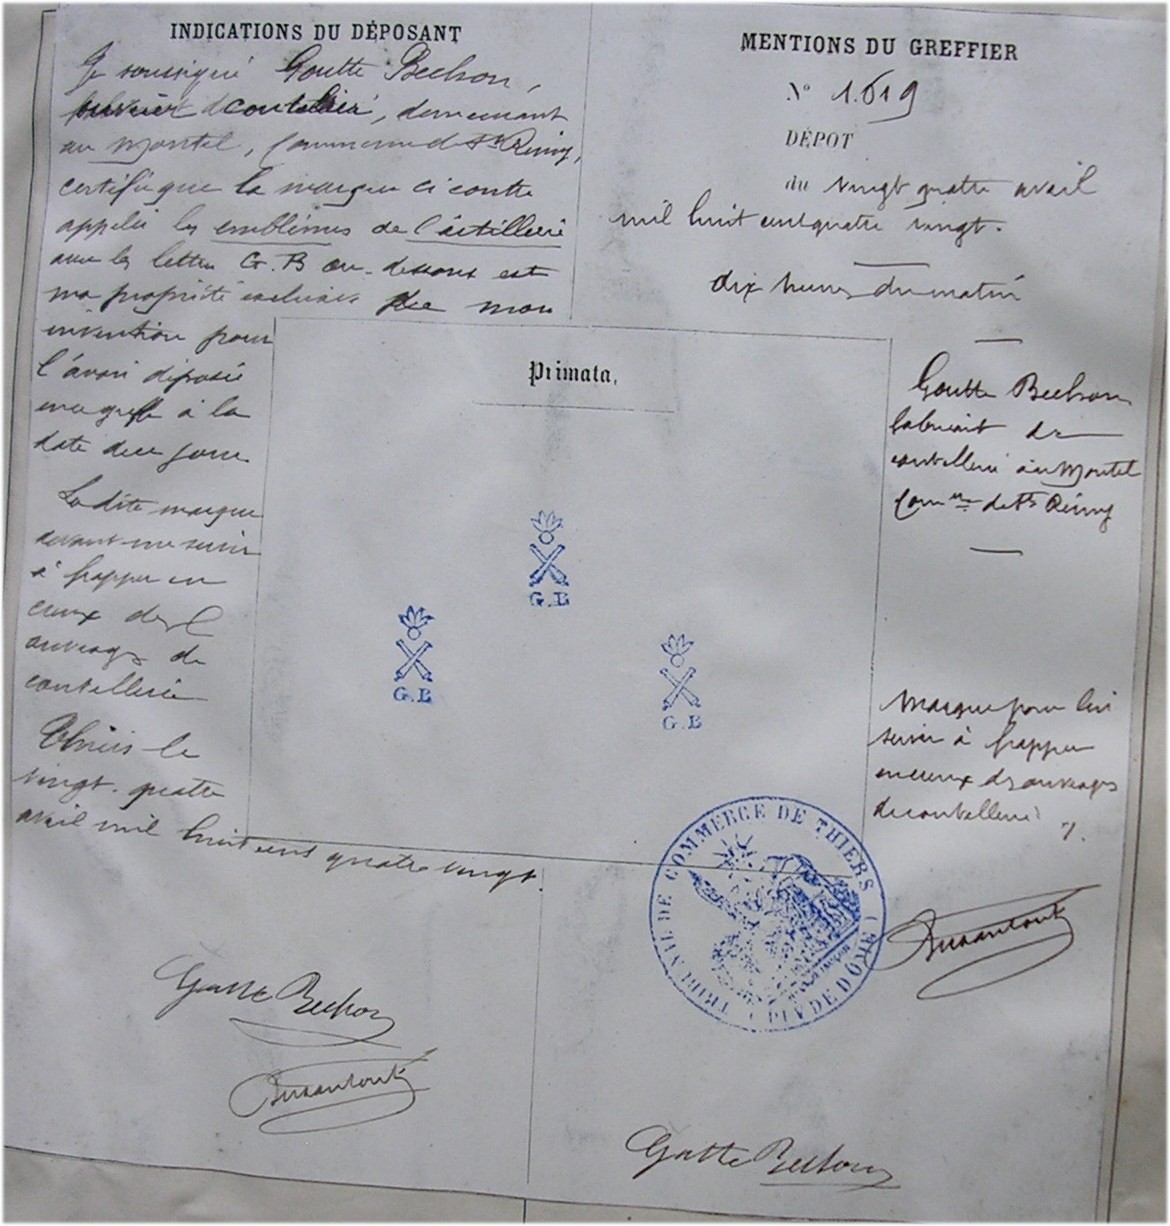 INDICATIONS DU DÉPOSANT
Je soussigné Goutte Bechon,
coutelier, demeurant
au Montel, Commune de St Rémy,
certifie que la marque ci contre
appelée les emblêmes de l'artillerie
avec les lettres G. B au-dessous est
ma propriété exclusive de mon
invention pour
l'avoir déposée
au greffe à la
date de ce jour.
La dite marque
devant me servir
à frapper en
creux des
ouvrages de
coutellerie
Thiers le
vingt-quatre
avril mil huit cent quatre vingt.
Goutte Bechon
MENTIONS DU GREFFIER
N° 1.619
DÉPOT
du vingt quatre avril
mil huit cent quatre vingt.
dix heures du matin
Goutte Bechon
fabricant de
coutellerie au Montel
Comne de St Rémy
Marque pour lui
servir à frapper
en creux des ouvrages
de coutellerie
Primata,
G.B
G.B
G.B
TRIBUNAL DE COMMERCE DE THIERS
( PUY DE DOME )
Goutte Bechon